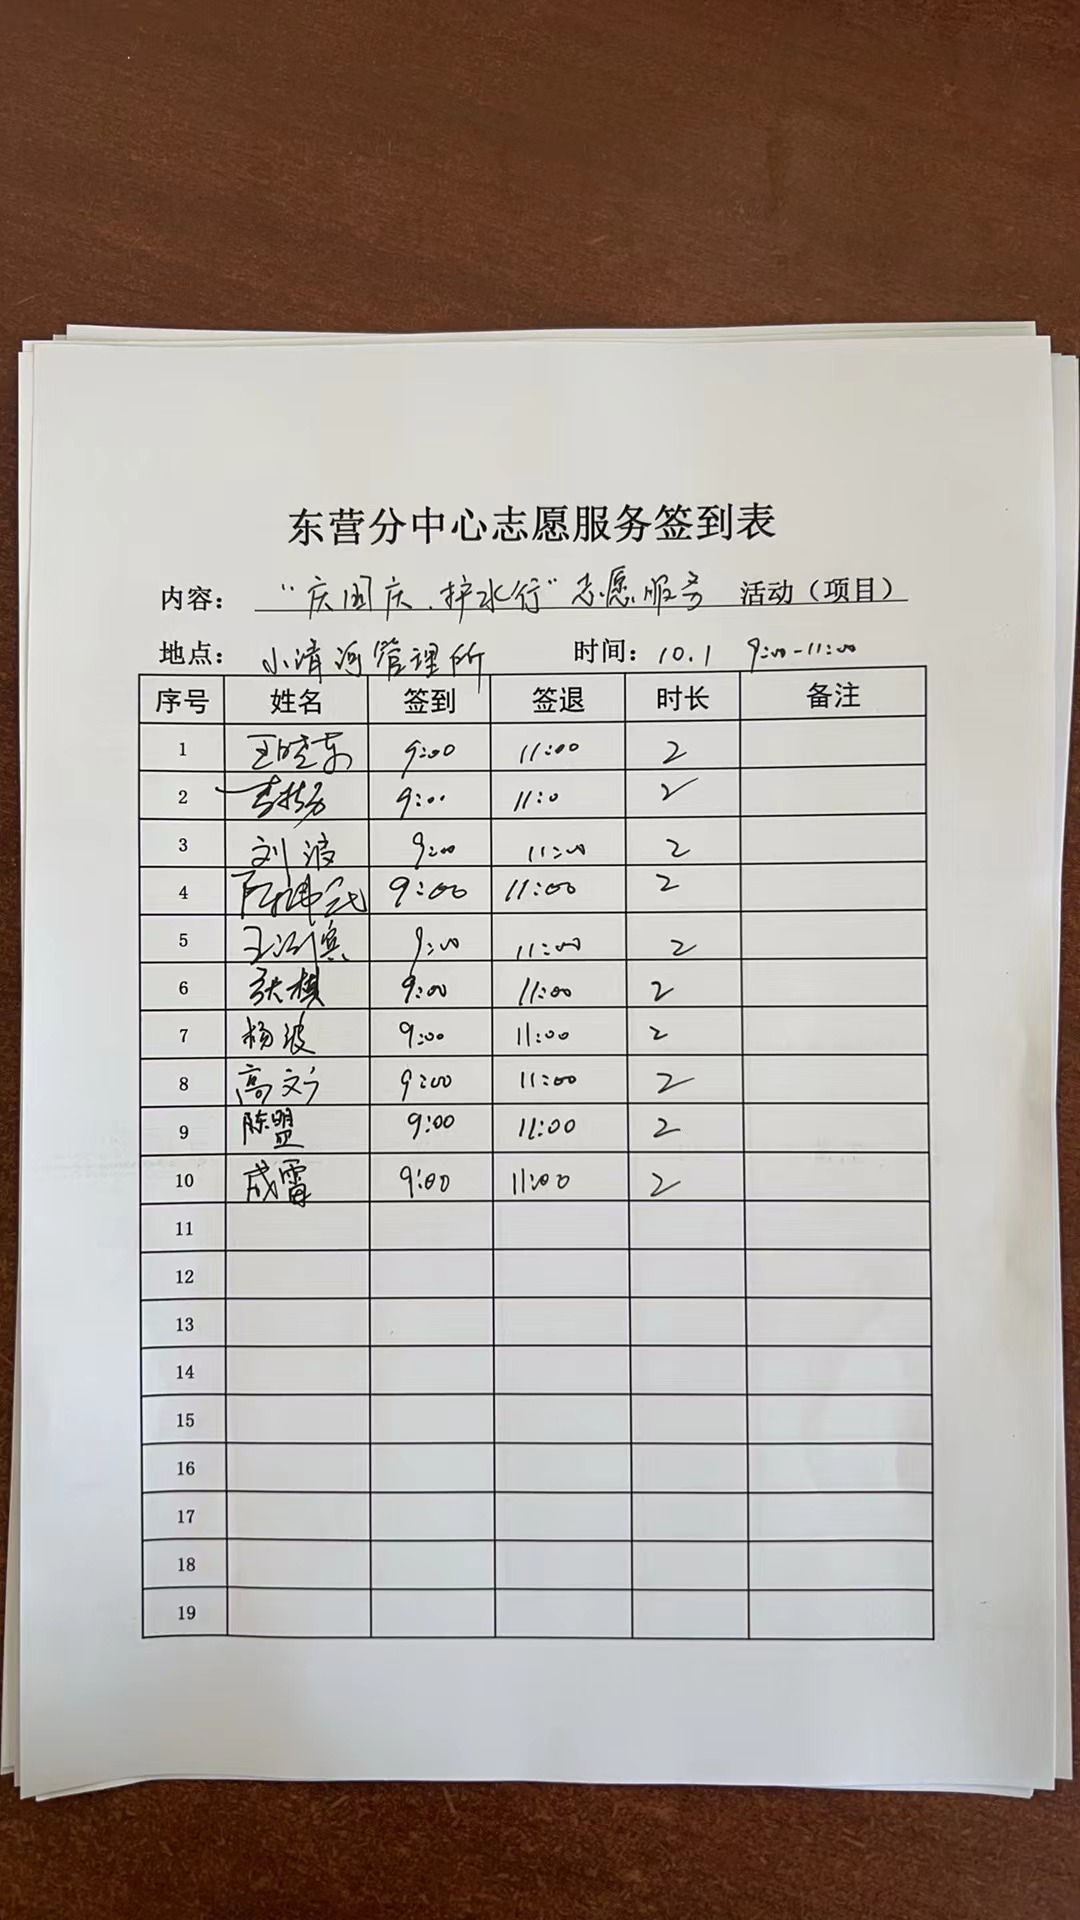 东营分中心志愿服务签到表
内容：“庆国庆、护水行”志愿服务 活动（项目）
地点：小清河管理所 时间：10.1 9:00-11:00
序号 姓名 签到 签退 时长 备注
1 王晓东 9:00 11:00 2
2 9:00 11:0 2
3 刘波 9:00 11:00 2
4 9:00 11:00 2
5 9:00 11:00 2
6 张棋 9:00 11:00 2
7 杨波 9:00 11:00 2
8 高文 9:00 11:00 2
9 陈盟 9:00 11:00 2
10 成雷 9:00 11:00 2
11
12
13
14
15
16
17
18
19